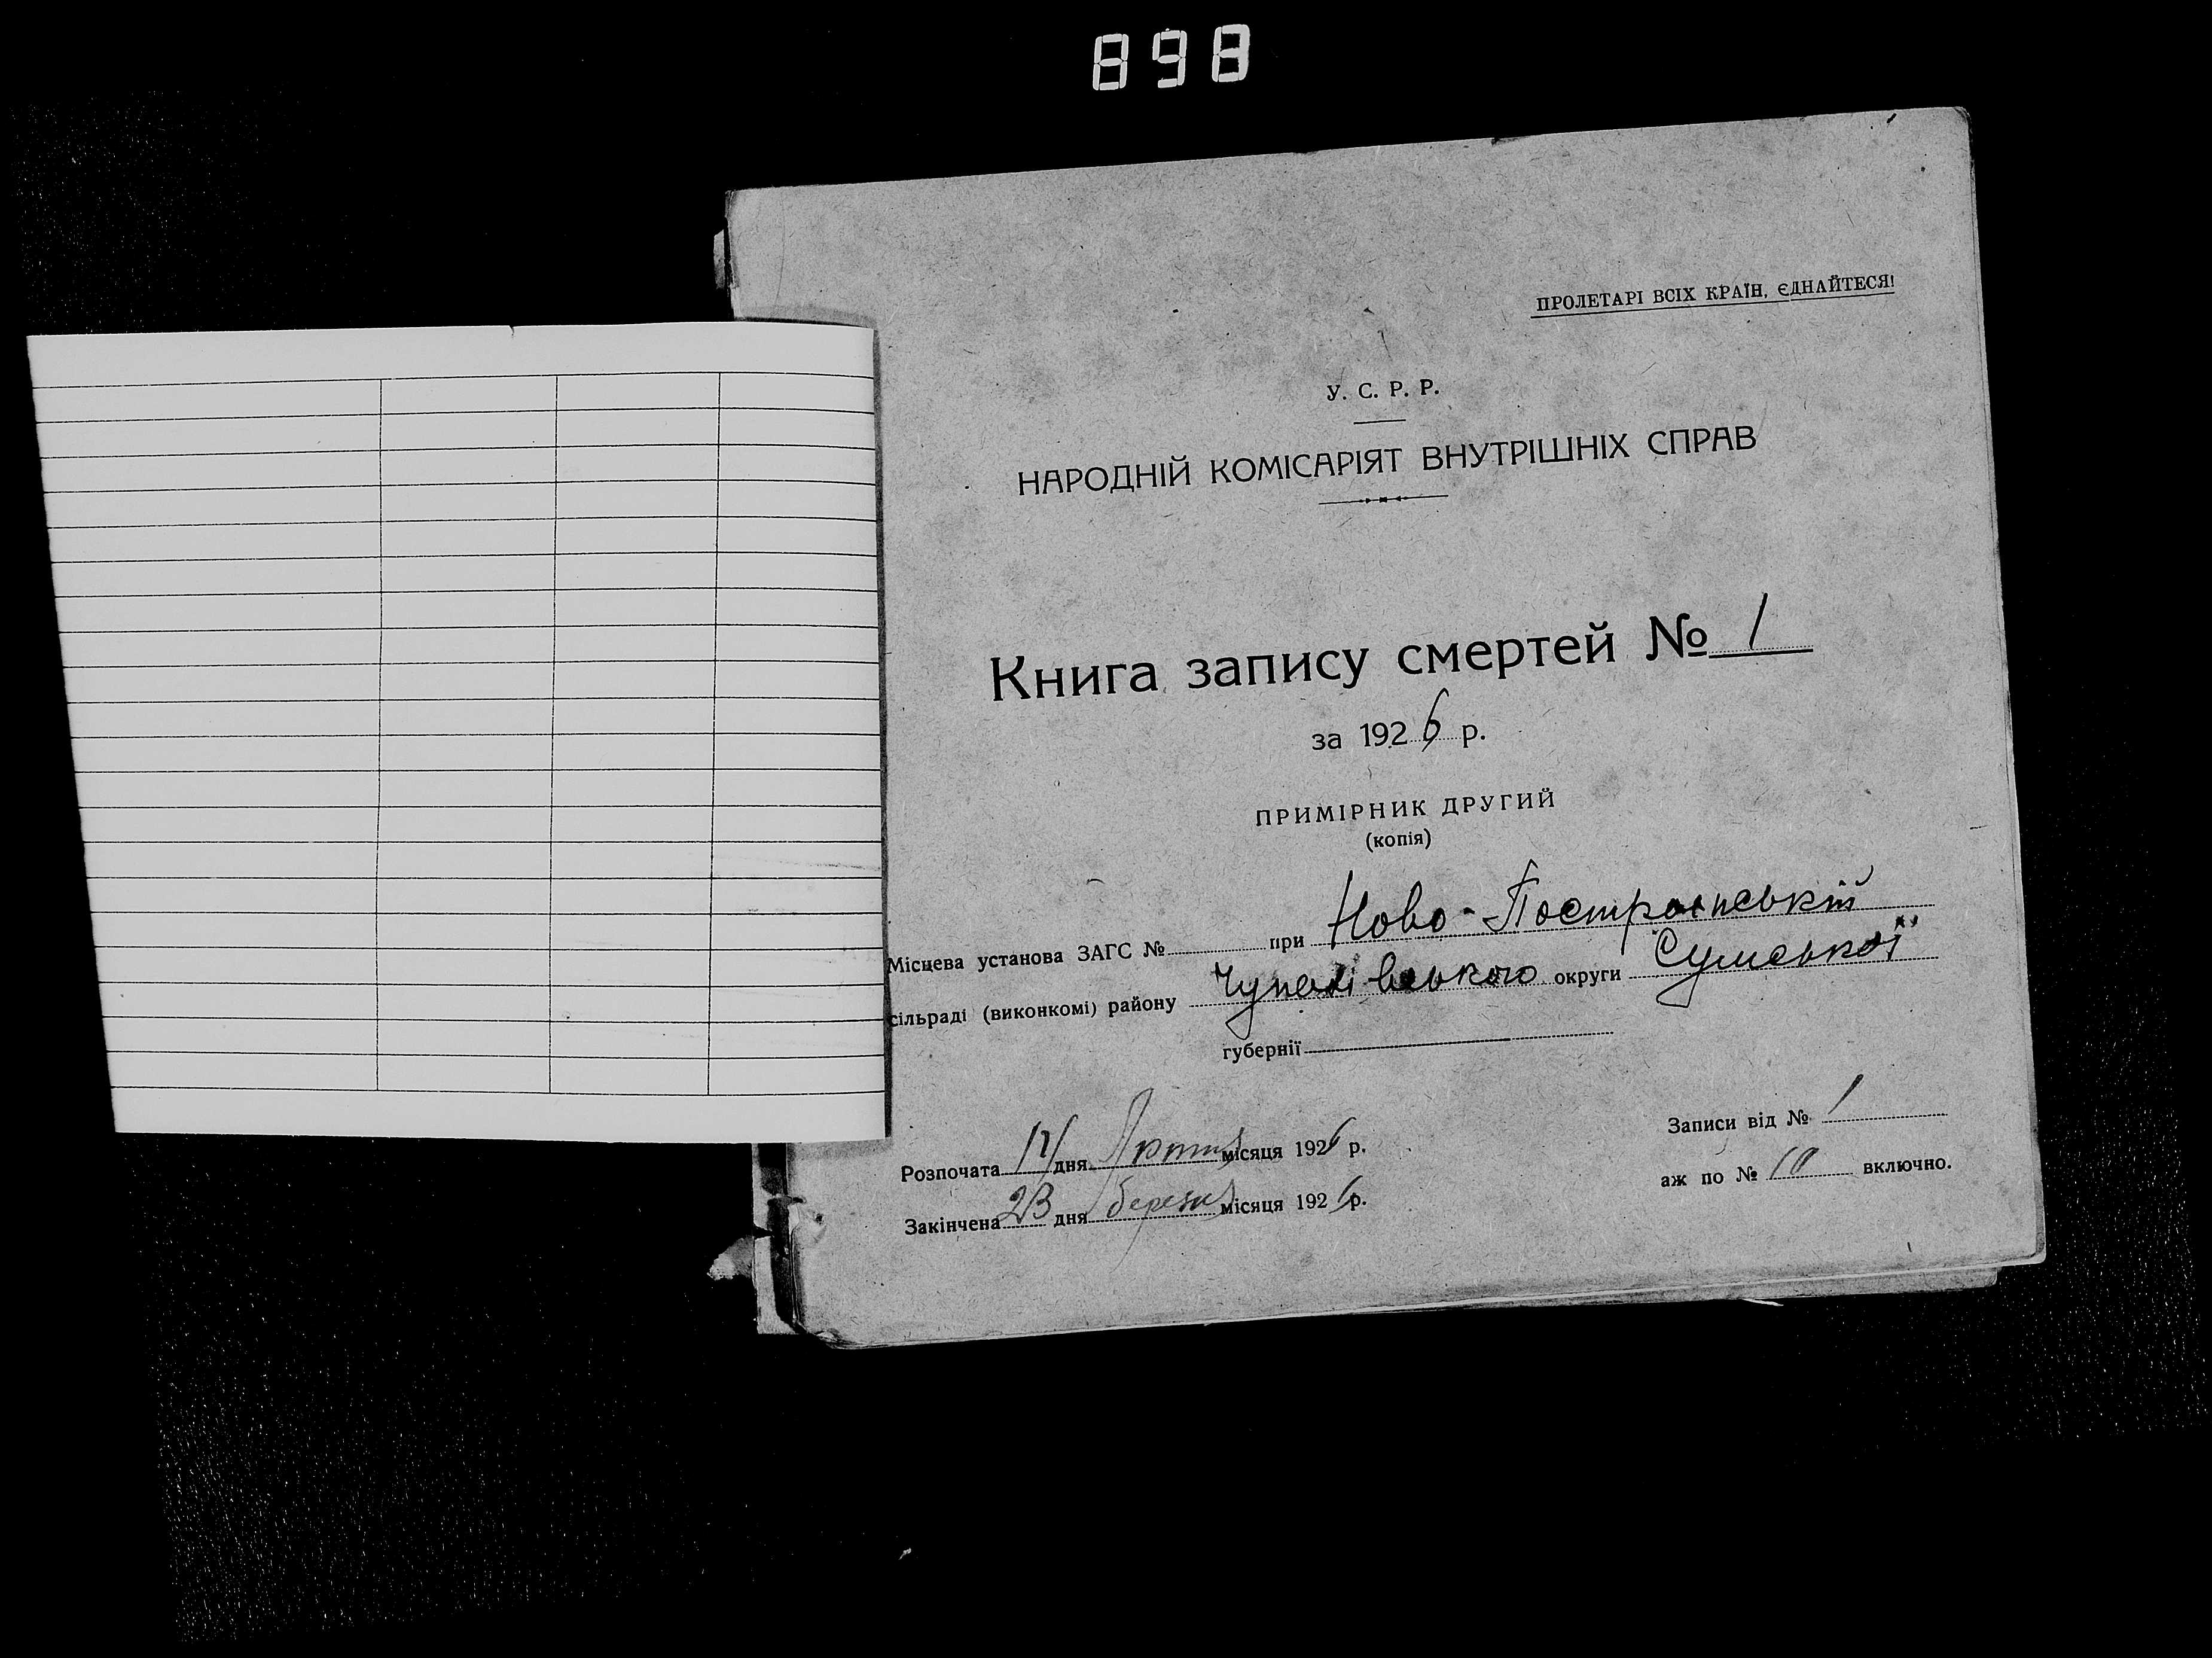 898
ПРОЛЕТАРІ ВСІХ КРАЇН, ЄДНАЙТЕСЯ!
У. С. Р. Р.
НАРОДНІЙ КОМІСАРІЯТ ВНУТРІШНІХ СПРАВ
Книга запису смертей № 1
за 1926 р.
ПРИМІРНИК ДРУГИЙ
(копія)
Місцева установа ЗАГС № при Ново-
сільраді (виконкомі) району округи Сумської
губернії
Розпочата дня місяця 1926 р.
Закінчена 23 дня березня місяця 1926 р.
Записи від № 1
аж по № 10 включно.